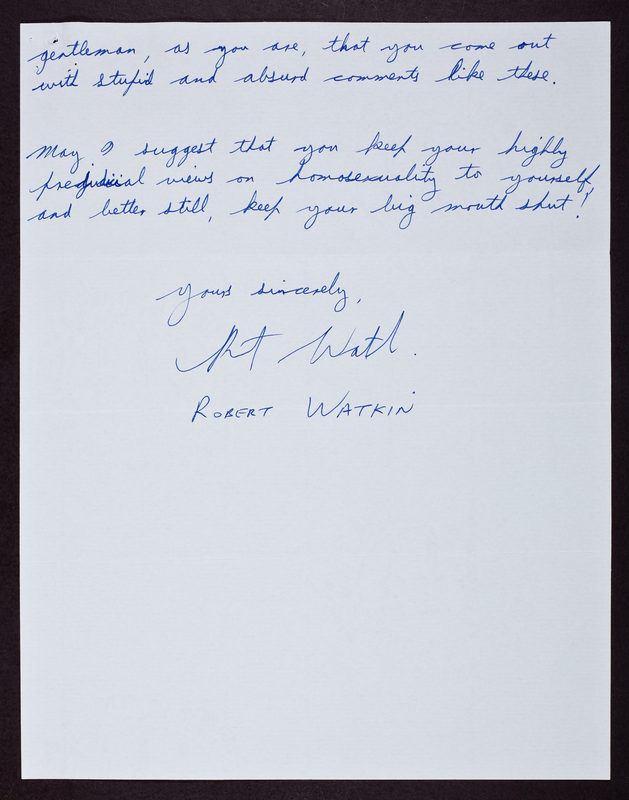 gentleman, as you are, that you come out
with stupid and absurd comments like these.
May I suggest that you keep your highly
prejudicial views on homosexuality to yourself,
and better still, keep your big mouth shut!
Yours sincerely,
Robert Watkin